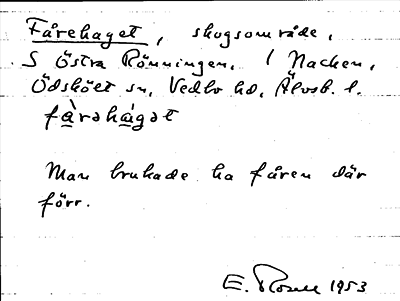 Fårehaget, skogsområde,
S Östra Rönningen, 1 Nacken,
Ödsköет sn, Vedbo hd, Älvsb. l.
fårəhágət
Man brukade ha fåren där
förr.
E. Rosell 1953